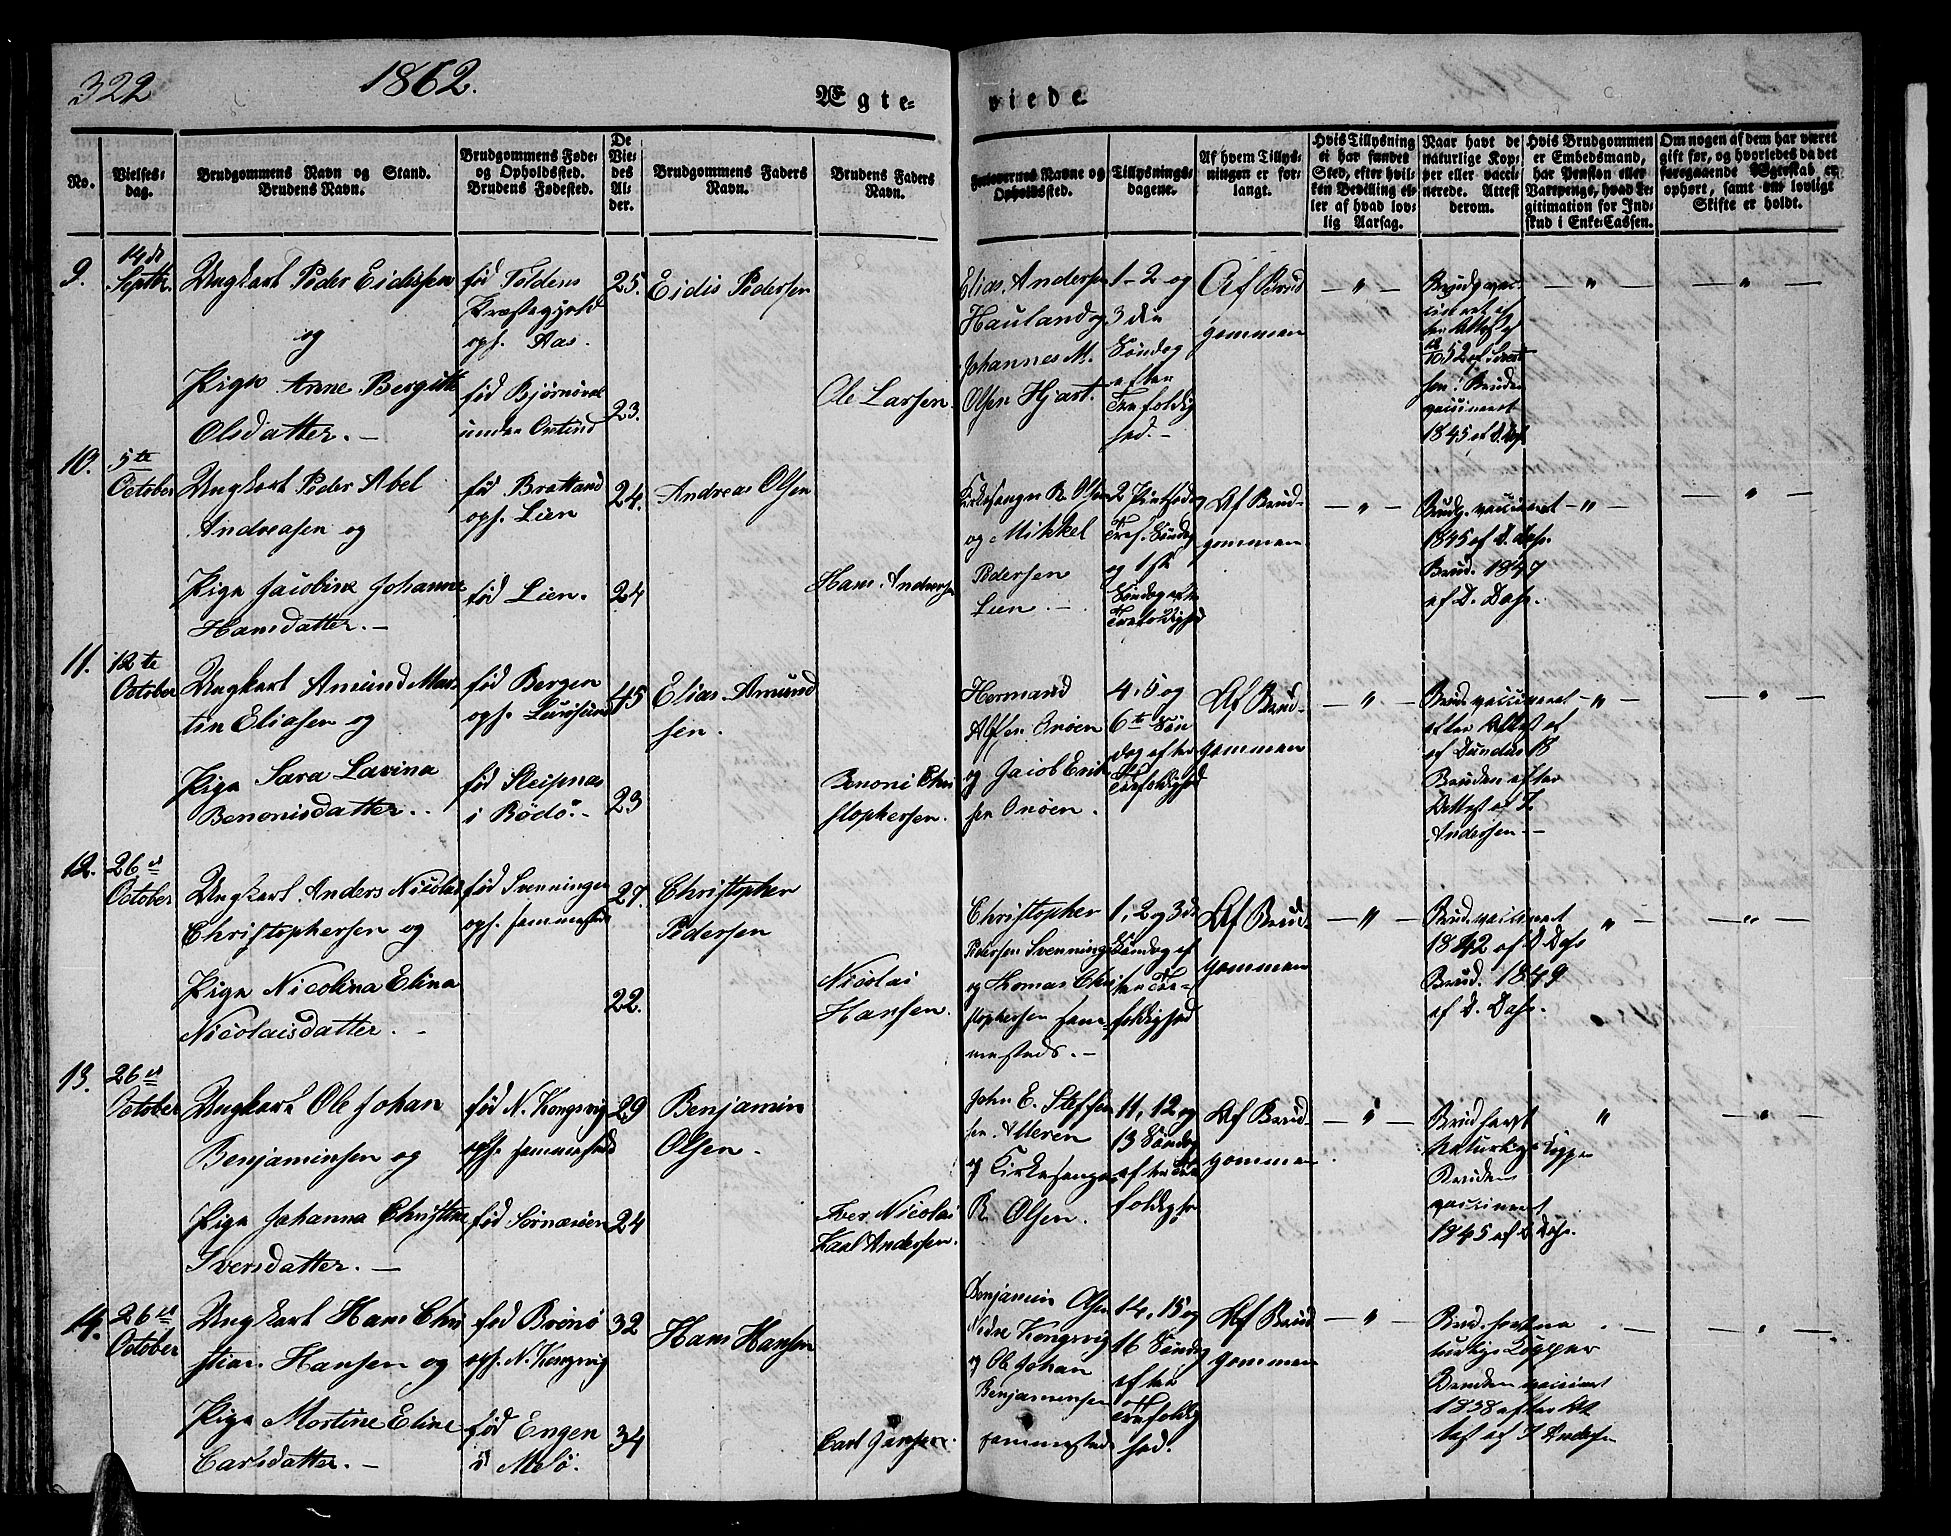 322
1862.
Ægte-
viede
No.
Vielses-
dag.
Brudgommens Navn og Stand.
Brudens Navn.
Brudgommens Føde-
og Opholdssted.
Brudens Fødested.
De
Vie-
des
Al-
der.
Brudgommens Faders
Navn.
Brudens Faders
Navn.
Forlovernes Navne og
Opholdssted.
Tillysnings-
dagene.
Af hvem Tillys-
ningen er for-
langt.
Hvis Tillysning
ei har fundet
Sted, efter hvil-
ken Bevilling el-
ler af hvad lov-
lig Aarsag.
Naar havt de
naturlige Kop-
per eller vacci-
nerede. Attest
derom.
Hvis Brudgommen
er Embedsmand,
har Pension eller
Vartpenge, hvad Le-
gitimation for Ind-
skud i Enke-Cassen.
Om nogen af dem har været
gift før, og hvorledes da det
foregaaende Ægteskab er
ophørt, samt om lovligt
Skifte er holdt.
9.
14de
Septbr.
Ungkarl Peder Eidissen
og
Pige Anne Bergitte
Olsdatter. —
fød Foldens
Præstegjeld
oph. Aas.
fød Bjørnøvel
under
25.
23.
Eidis Pedersen
Ole Larsen
Elias Andersen
Hauland og
Johannes M.
Olsen Hjart.
1 - 2 og
3 die
Søndag
efter
Trefoldig
hed. -
Af Brud
gommen
— " —
Brudg. vac-
cineret
1852 af
Bruden
vaccineret
1845 af D. Dass
— " —
— " —
10.
5te
October
Ungkarl Peder Abel
Andreasen og
Pige Jacobine Johanne
Hansdatter. —
fød Brattland
oph. Lien
fød Lien.
24.
24
Andreas Olsen
Hans Andersen
Kirkesanger R. Olsen
og Mikkel
Pedersen
Lien. —
2 Pintsedag
Tref. Søndag
og 1ste
Søndag efter
Trefoldighed
Af Brud-
gommen
— " —
Brudg. vaccineret
1845 af D. Dass.
Brud. 1847
af D. Dass.
— " —
— " —
11.
12te
October
Ungkarl Amund Mar-
tin Eliasen og
Pige Sara Lavina
Benonisdatter. .
fød Bergen
oph. Lurøsund
fød Sleipnæs
i Rødø. -
45
23
Elias Amund
sen.
Benoni Chri
stophersen.
Hermand
Alfsen Onøen
og Jacob Erik
sen Onøen.
4, 5 og
6te Søn
dag efter
Trefoldighed
Af Brud-
gommen
— " —
Brudg. vaccineret
efter Attest af
af Dundas 18
Bruden efter
Attest af I.
Andersen —
— " —
— " —
12.
26de
October
Ungkarl Anders Nicolai
Christophersen og
Pige Nicolina Elina
Nicolaisdatter. —
fød Svenningen
oph. sammested
27.
22.
Christopher
Pedersen
Nicolai
Hansen.
Christopher
Pedersen Svenningen
og Thomas Chri
stophersen sam-
mesteds. —
1, 2 og 3de
Søndag ef
ter Tre-
foldighed
Af Brud-
gommen
— " —
Brud. vaccineret
1842 af D. Dass
Brud. 1849
af D. Dass.
" —
— " —
13.
26de
October
Ungkarl Ole Johan
Benjaminsen og
Pige Johanna Christine
Iversdatter. —
fød N. Kongsvig
oph. sammested
fød Sørnæsøen
29
24
Benjamin
Olsen.
Iver Nicolai
Karl Andersen.
John E. Steffen
sen. Alteren
og Kirkesanger
R. Olsen.
11, 12 og
13 Søndag
efter Tre
foldighed
Af Brud-
gommen
— " —
Brud havt
naturlige Kopper
Bruden
vaccineret
1845 af D. Dass.
"
— " —
14.
26de
October
Ungkarl Hans Chri
stian Hansen og
Pige Martine Eline
Carlsdatter. —
fød Brønø
oph. N. Kongsvig
fød Engen
i Melø.
32
34
Hans Hansen
Carl Jansen.
Benjamin Olsen
Nedre Kongsvig
og Ole Johan
Benjaminsen
sammesteds
14, 15 og
16 Søndag
efter
Trefoldig
hed.
Af Brud
gommen
— " —
Brud. havt na
turlige Kopper
Bruden vaccineret
1838 efter At
test af I Andersen
— " —